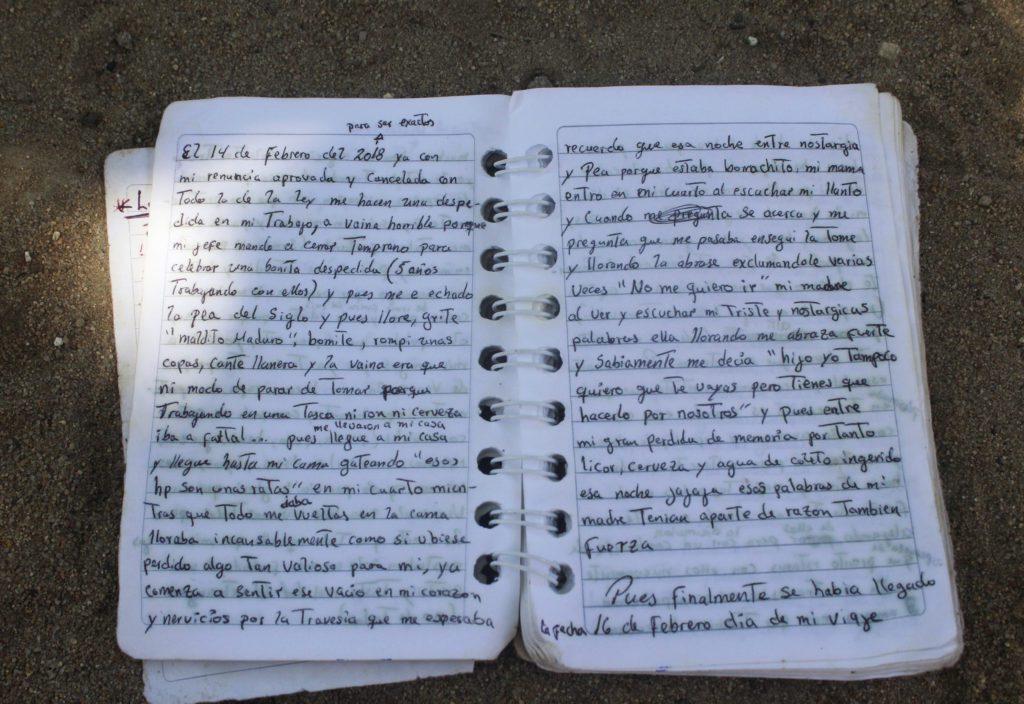 para ser exactos
El 14 de Febrero del 2018 ya con
mi renuncia aprovada y Cancelada con
Todo lo de la ley me hacen una despe-
dida en mi Trabajo, a vaina horrible porque
mi jefe mando a cerrar Temprano para
celebrar una bonita despedida (5 años
Trabajando con ellos) y pues me e echado
la pea del Siglo y pues llore, grite
"maldito Maduro", bomite, rompi unas
copas, cante llanera y la vaina era que
ni modo de parar de Tomar porque
Trabajando en una Tasca ni ron ni cerveza
iba a faltal... pues llegue a mi casa
me llevaron a mi casa
y llegue hasta mi cama gateando "esos
hp son unas ratas" en mi cuarto mien-
Tras que Todo me daba vueltas en la cama
lloraba incansablemente como si ubiese
perdido algo Tan valioso para mi, ya
comenza a sentir ese vacio en mi corazon
y nervicios por la Travesia que me esperaba
recuerdo que esa noche entre nostargia
y Pea porque estaba borrachito, mi mama
entro en mi cuarto al escuchar mi llanto
y Cuando me pregunta se acerca y me
pregunta que me pasaba ensegui la Tome
y llorando la abrase exclumandole varias
veces "No me quiero ir" mi madre
al ver y escuchar mi Triste y nostargicas
palabras ella llorando me abraza fuerte
y Sabiamente me decia "hijo yo Tampoco
quiero que Te vayas pero Tienes que
hacerlo por nosotros" y pues entre
mi gran perdida de memoria por Tanto
licor, cerveza y agua de coñito ingerido
esa noche jajaja esas palabras de mi
madre Tenian aparte de razon Tambien
Fuerza
Pues Finalmente se habia llegado
la fecha 16 de Febrero dia de mi viaje